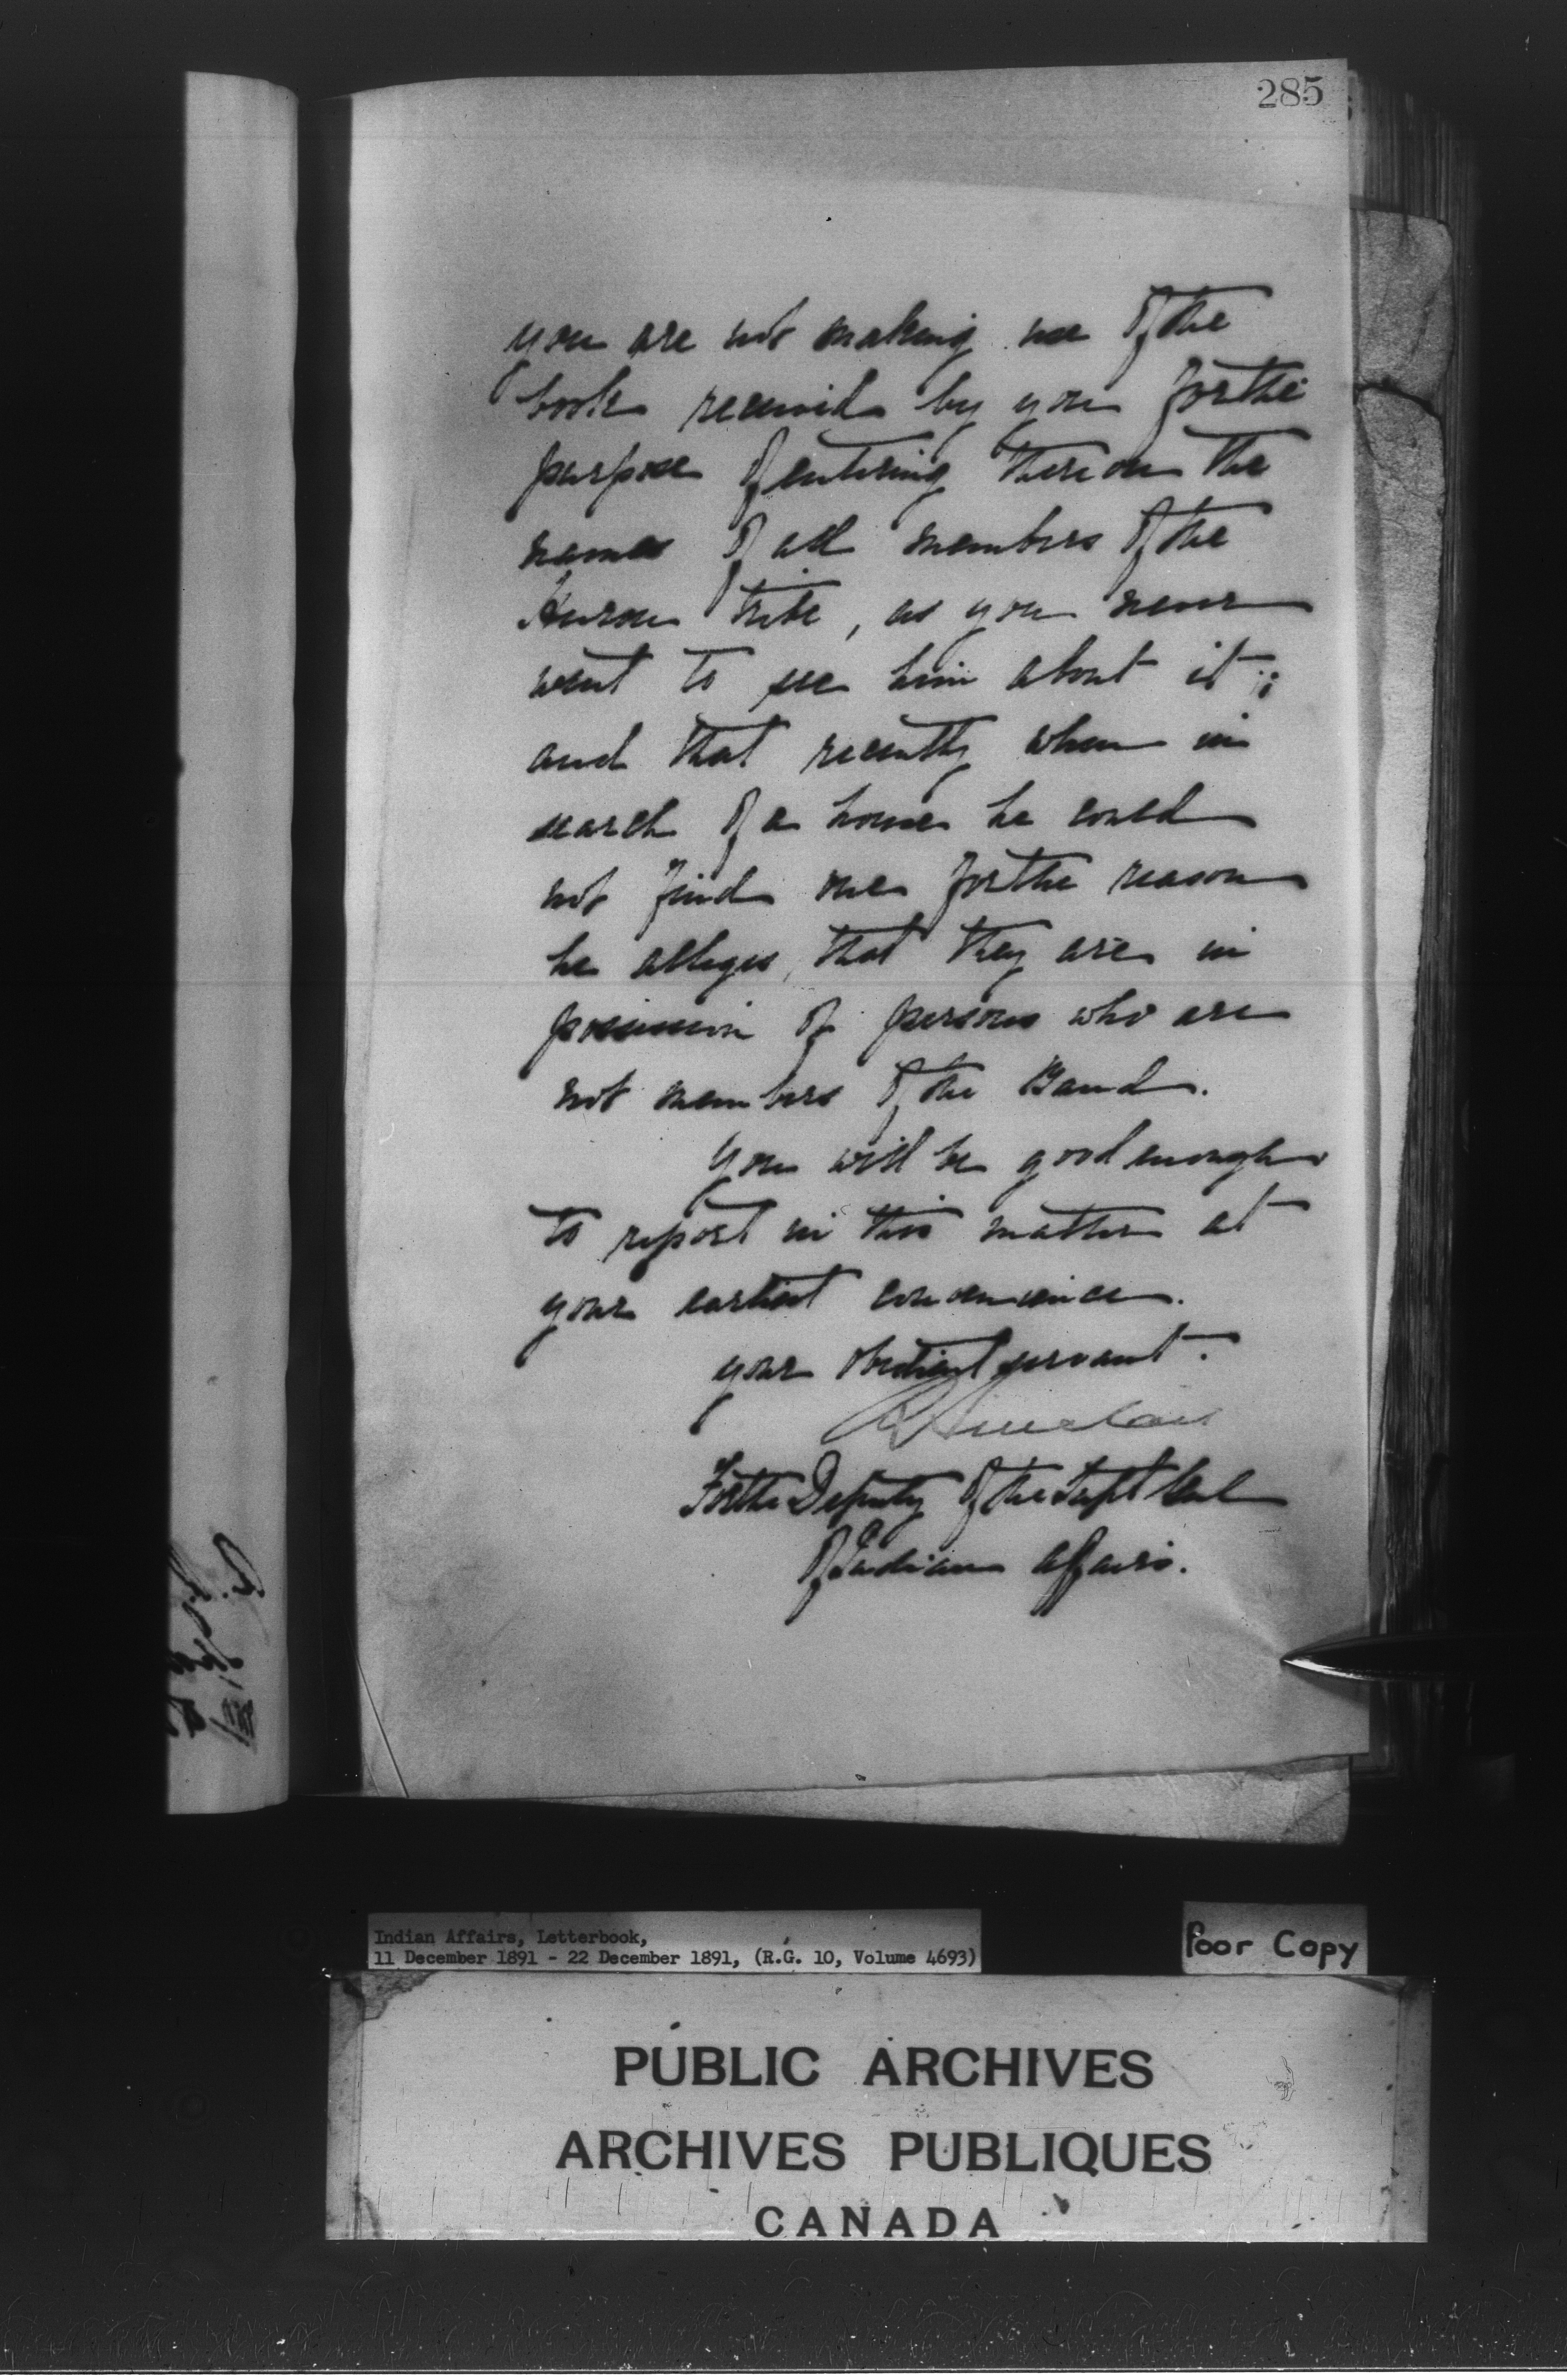 285
you are not making use of the
book received by you for the
purpose of entering thereon the
names of all members of the
Huron tribe, as you never
went to see him about it;
and that recently when in
search of a house he could
not find one for the reason
he alleges, that they are in
possession of persons who are
not members of the Band.
You will be good enough
to report in this matter at
your earliest convenience.
your obedient servant.
R Sinclair
For the Deputy of the Supt Genl
of Indian Affairs.
Indian Affairs, Letterbook,
11 December 1891 - 22 December 1891, (R.G. 10, Volume 4693)
Poor Copy
PUBLIC ARCHIVES
ARCHIVES PUBLIQUES
CANADA